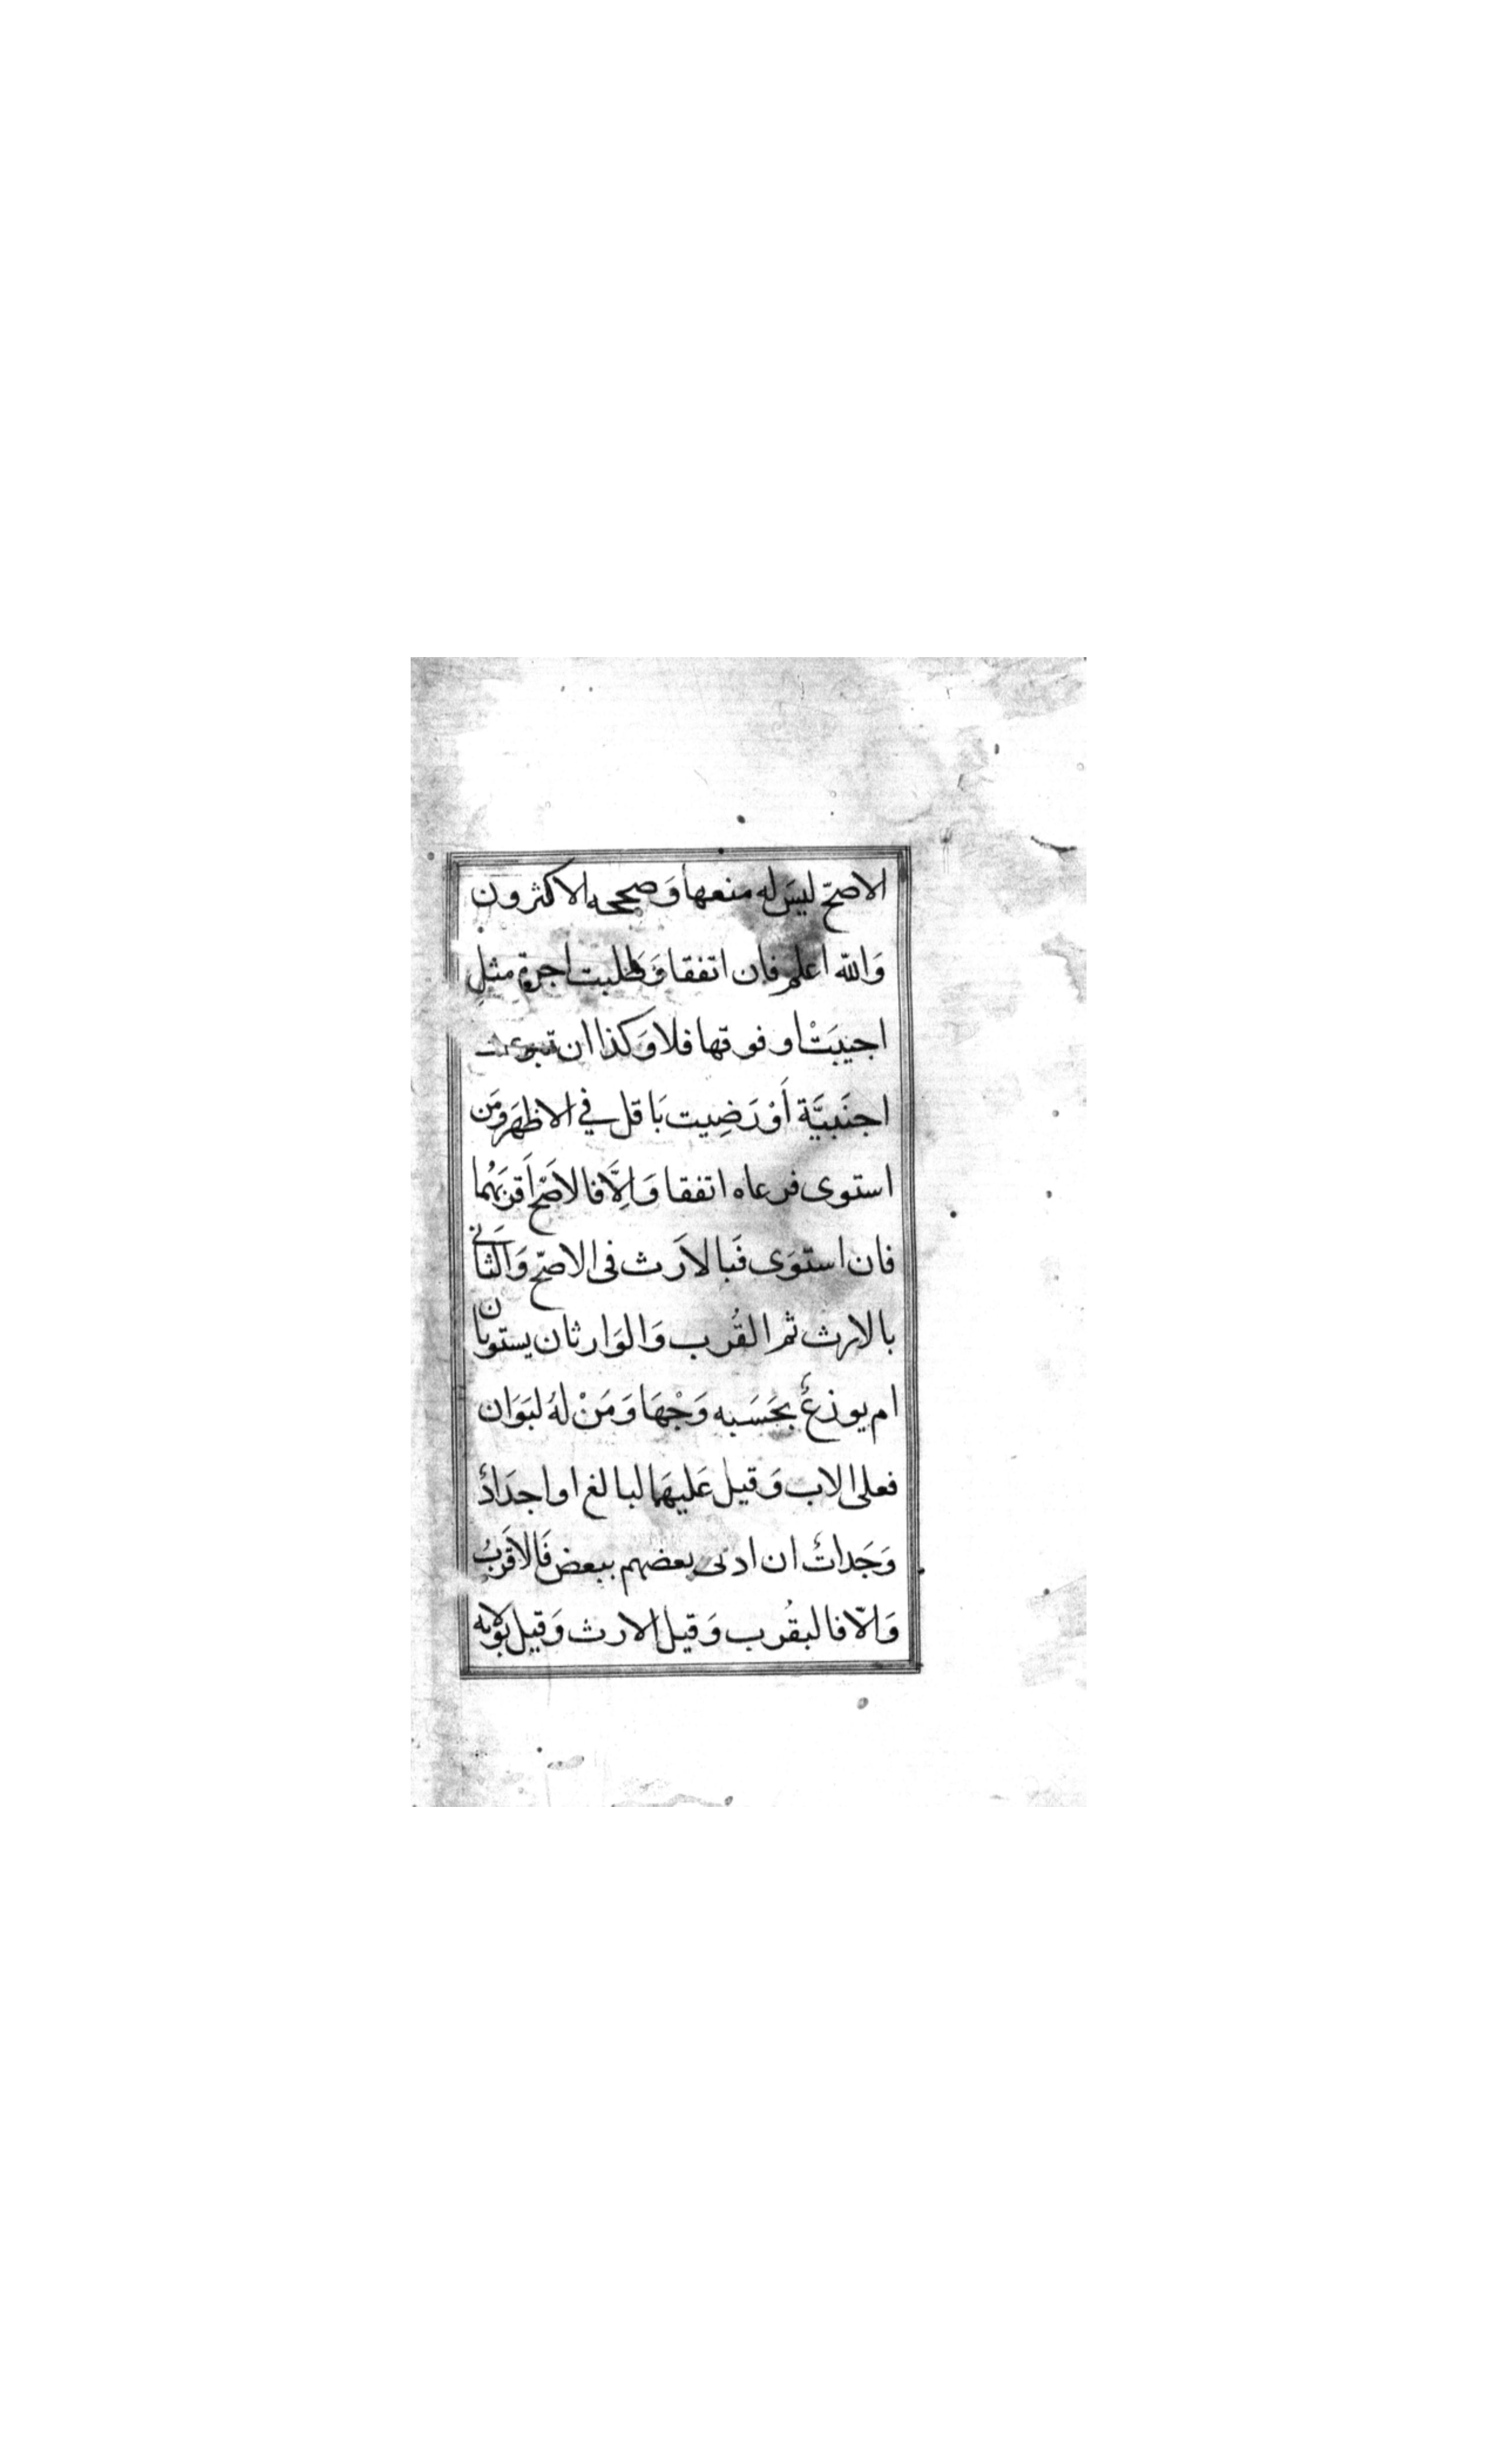 الاصحّ ليسَ له منعها وَصححه الاكثرون
وَاللّه اعلم فان اتفقا وَطلبت اجرة مثلٍ
اجيبَتْ او فوقها فلا وَكذا ان تبرعت
اجنَبيَّة أوْ رَضِيت بَاقل في الاظهَر وَمَن
استوى فرعاه اتفقا وَاِلَّا فالاَصْح أقربَهُما
فان استوَى فَبالاَرث فى الاصحّ وَالثانَي
بالارث ثم القُرب وَالوَارثان يستويان
ام يوزعُ بحَسَبه وَجْهَا وَمَنْ لهُ لبَوَان
فعلى الاب وَقيل عَليهَما لبالغ او اجدَادٌ
وَجَداتٌ ان ادلى بعضهم ببعض فَالاقَربُ
وَالّا فالبقُرب وَقيل الارث وَقيل بولايه